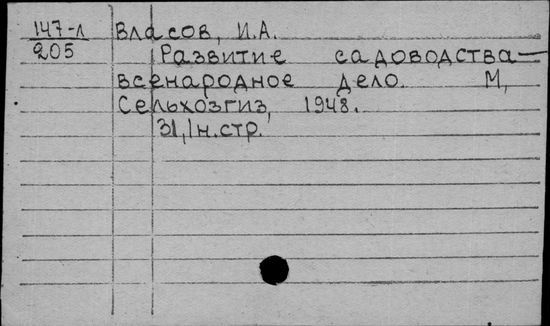 147-л Власов, И.А.
205 Развитие садоводства—
всенародное дело. М,
Сельхозгиз, 1948.
31,1н.стр.